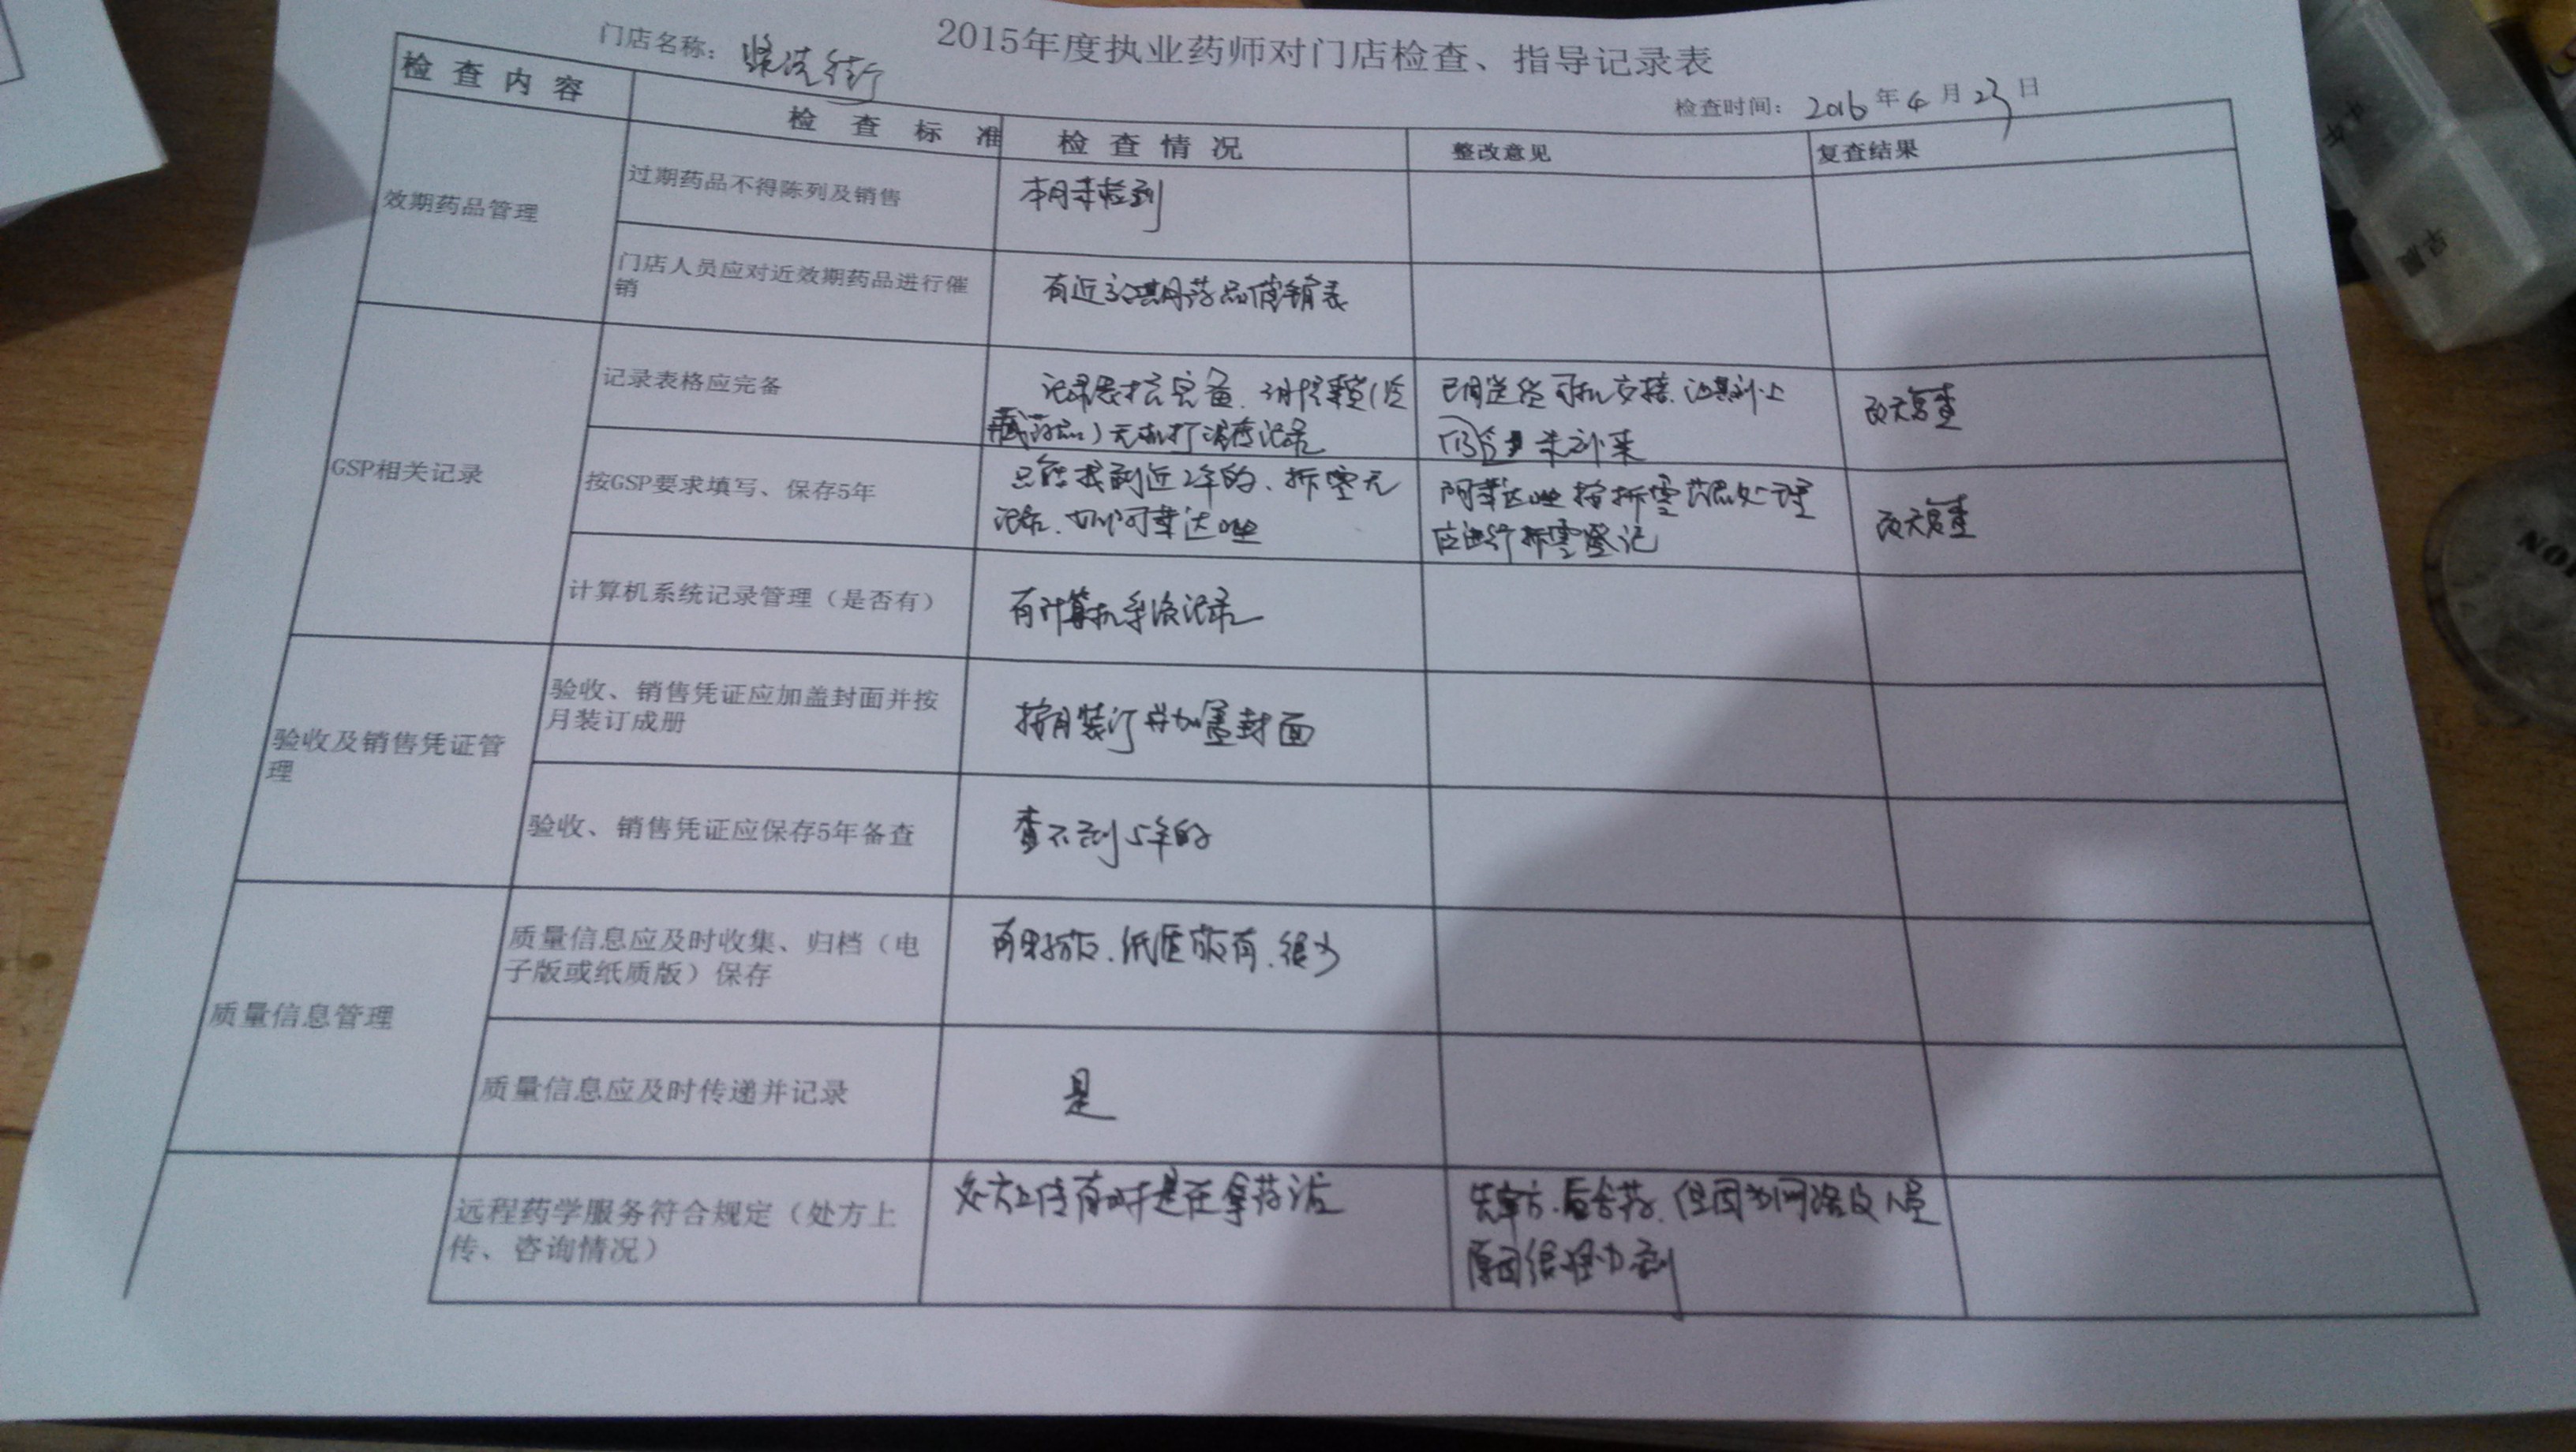 2015年度执业药师对门店检查、指导记录表
门店名称：
检查时间： 2016年4月23日
检查内容 检查标准 检查情况 整改意见 复查结果
效期药品管理
过期药品不得陈列及销售
本月未检到
门店人员应对近效期药品进行催
销
有近效期药品催销表
GSP相关记录
记录表格应完备
记录表格完备.
藏药品）无机打温度记录
已同送货司机交接.
仍 未补来
改天复查
按GSP要求填写、保存5年
只能找到近2年的.拆零无
记录.如阿苯达唑
阿苯达唑按拆零药品处理
应进行拆零登记
改天复查
计算机系统记录管理（是否有）
有计算机系统记录
验收及销售凭证管
理
验收、销售凭证应加盖封面并按
月装订成册
按月装订并加盖封面
验收、销售凭证应保存5年备查
查不到5年的
质量信息管理
质量信息应及时收集、归档（电
子版或纸质版）保存
纸质版有.很少
质量信息应及时传递并记录
是
远程药学服务符合规定（处方上
传、咨询情况）
处方上传有时是在拿药后
先审方.后拿药.但因为网络及人员
原因很难办到